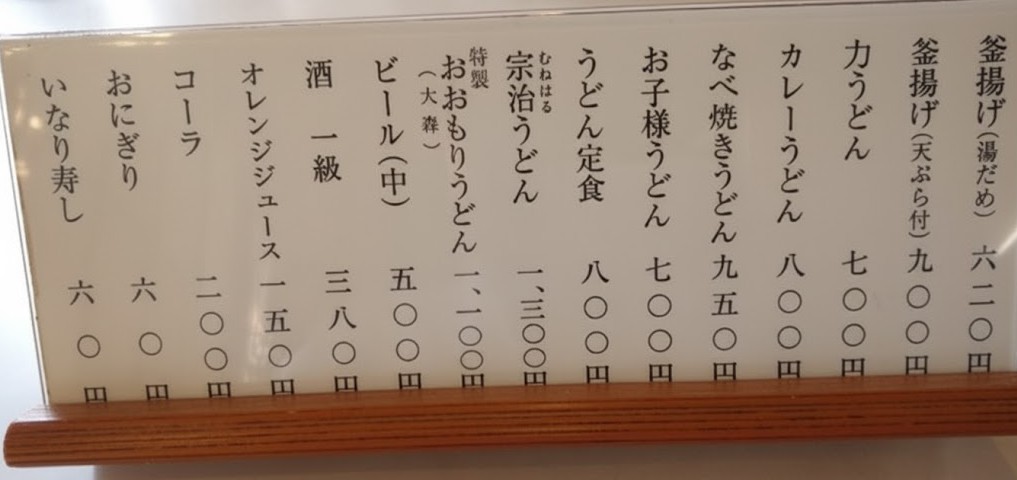 釜揚げ(湯だめ) 六二〇円
釜揚げ(天ぷら付) 九〇〇円
力うどん 七〇〇円
カレーうどん 八〇〇円
なべ焼きうどん 九五〇円
お子様うどん 七〇〇円
うどん定食 八〇〇円
むねはる
宗治うどん 一、三〇〇円
特製
おおもりうどん 一、一〇〇円
(大森)
ビール(中) 五〇〇円
酒 一級 三八〇円
オレンジジュース 一五〇円
コーラ 二〇〇円
おにぎり 六〇円
いなり寿し 六〇円